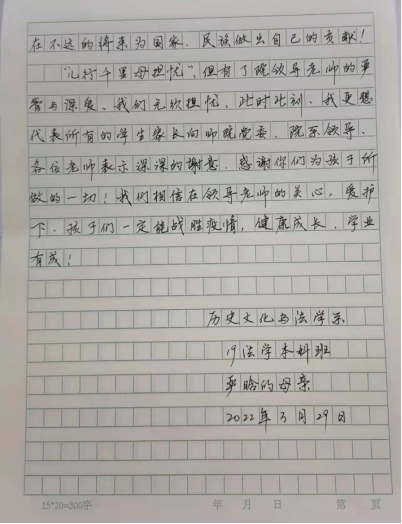 在不远的将来为国家、民族做出自己的贡献!
"儿行千里母担忧",但有了院领导老师的严
管与深爱、我们无须担忧、此时此刻、我更想
代表所有的学生家长向师院党委、院系领导、
各位老师表示深深的谢意、感谢你们为孩子所
做的一切!我们相信在领导老师的关心、爱护
下、孩子们一定能战胜疫情,健康成长、学业
有成!
历史文化与法学系
19法学本科班
严晗的母亲
2022年3月29日
15*20=300字 年 月 日 第 页